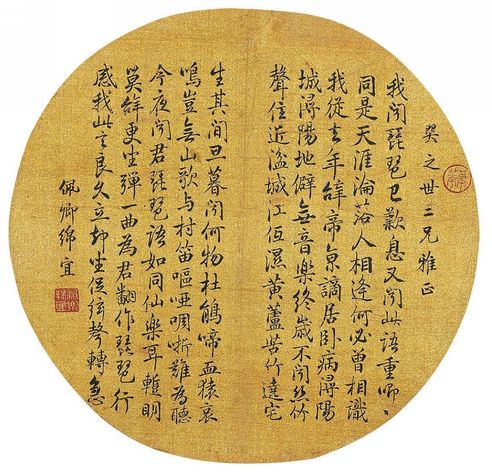 癸之世二兄雅正
我聞琵琶已歎息又聞此語重唧〻
同是天涯淪落人相逢何必曾相識
我從去年辭帝京謫居卧病潯陽
城潯陽地僻無音樂終歲不聞絲竹
聲住近湓城江恆濕黃蘆苦竹遶宅
生其間旦暮聞何物杜鵑啼血猿哀
鳴豈無山歌与村笛嘔啞啁哳難為聽
今夜聞君琵琶語如同仙樂耳暫明
莫辭更坐彈一曲為君翻作琵琶行
感我此言良久立却坐促絃轉急
佩卿綿宜